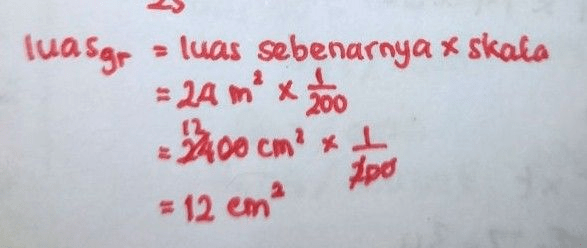 25
luas gr = luas sebenarnya x skala
= 24 m² x 1/200
12
= 2400 cm² x 1/200
= 12 cm²